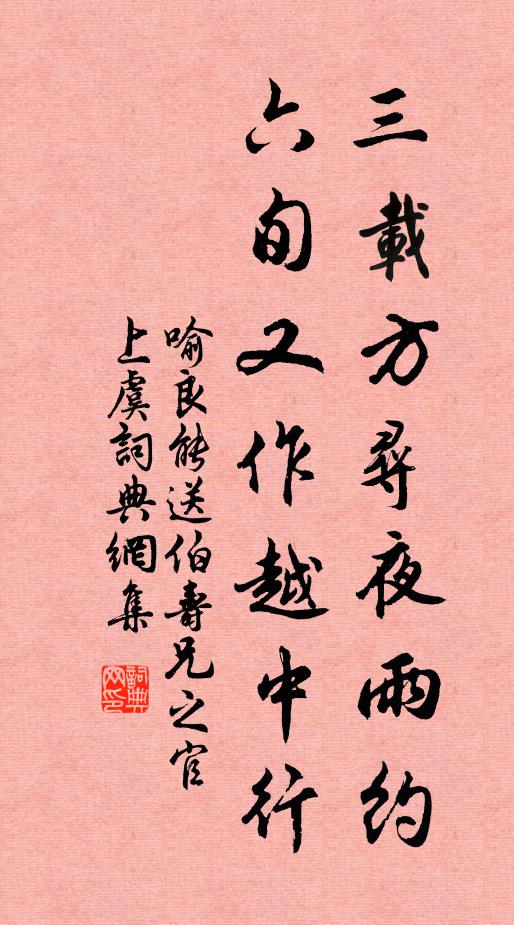 三載方尋夜雨約
六旬又作越中行
喻良能送伯壽兄之官
上虞詞典網集
詞典網印